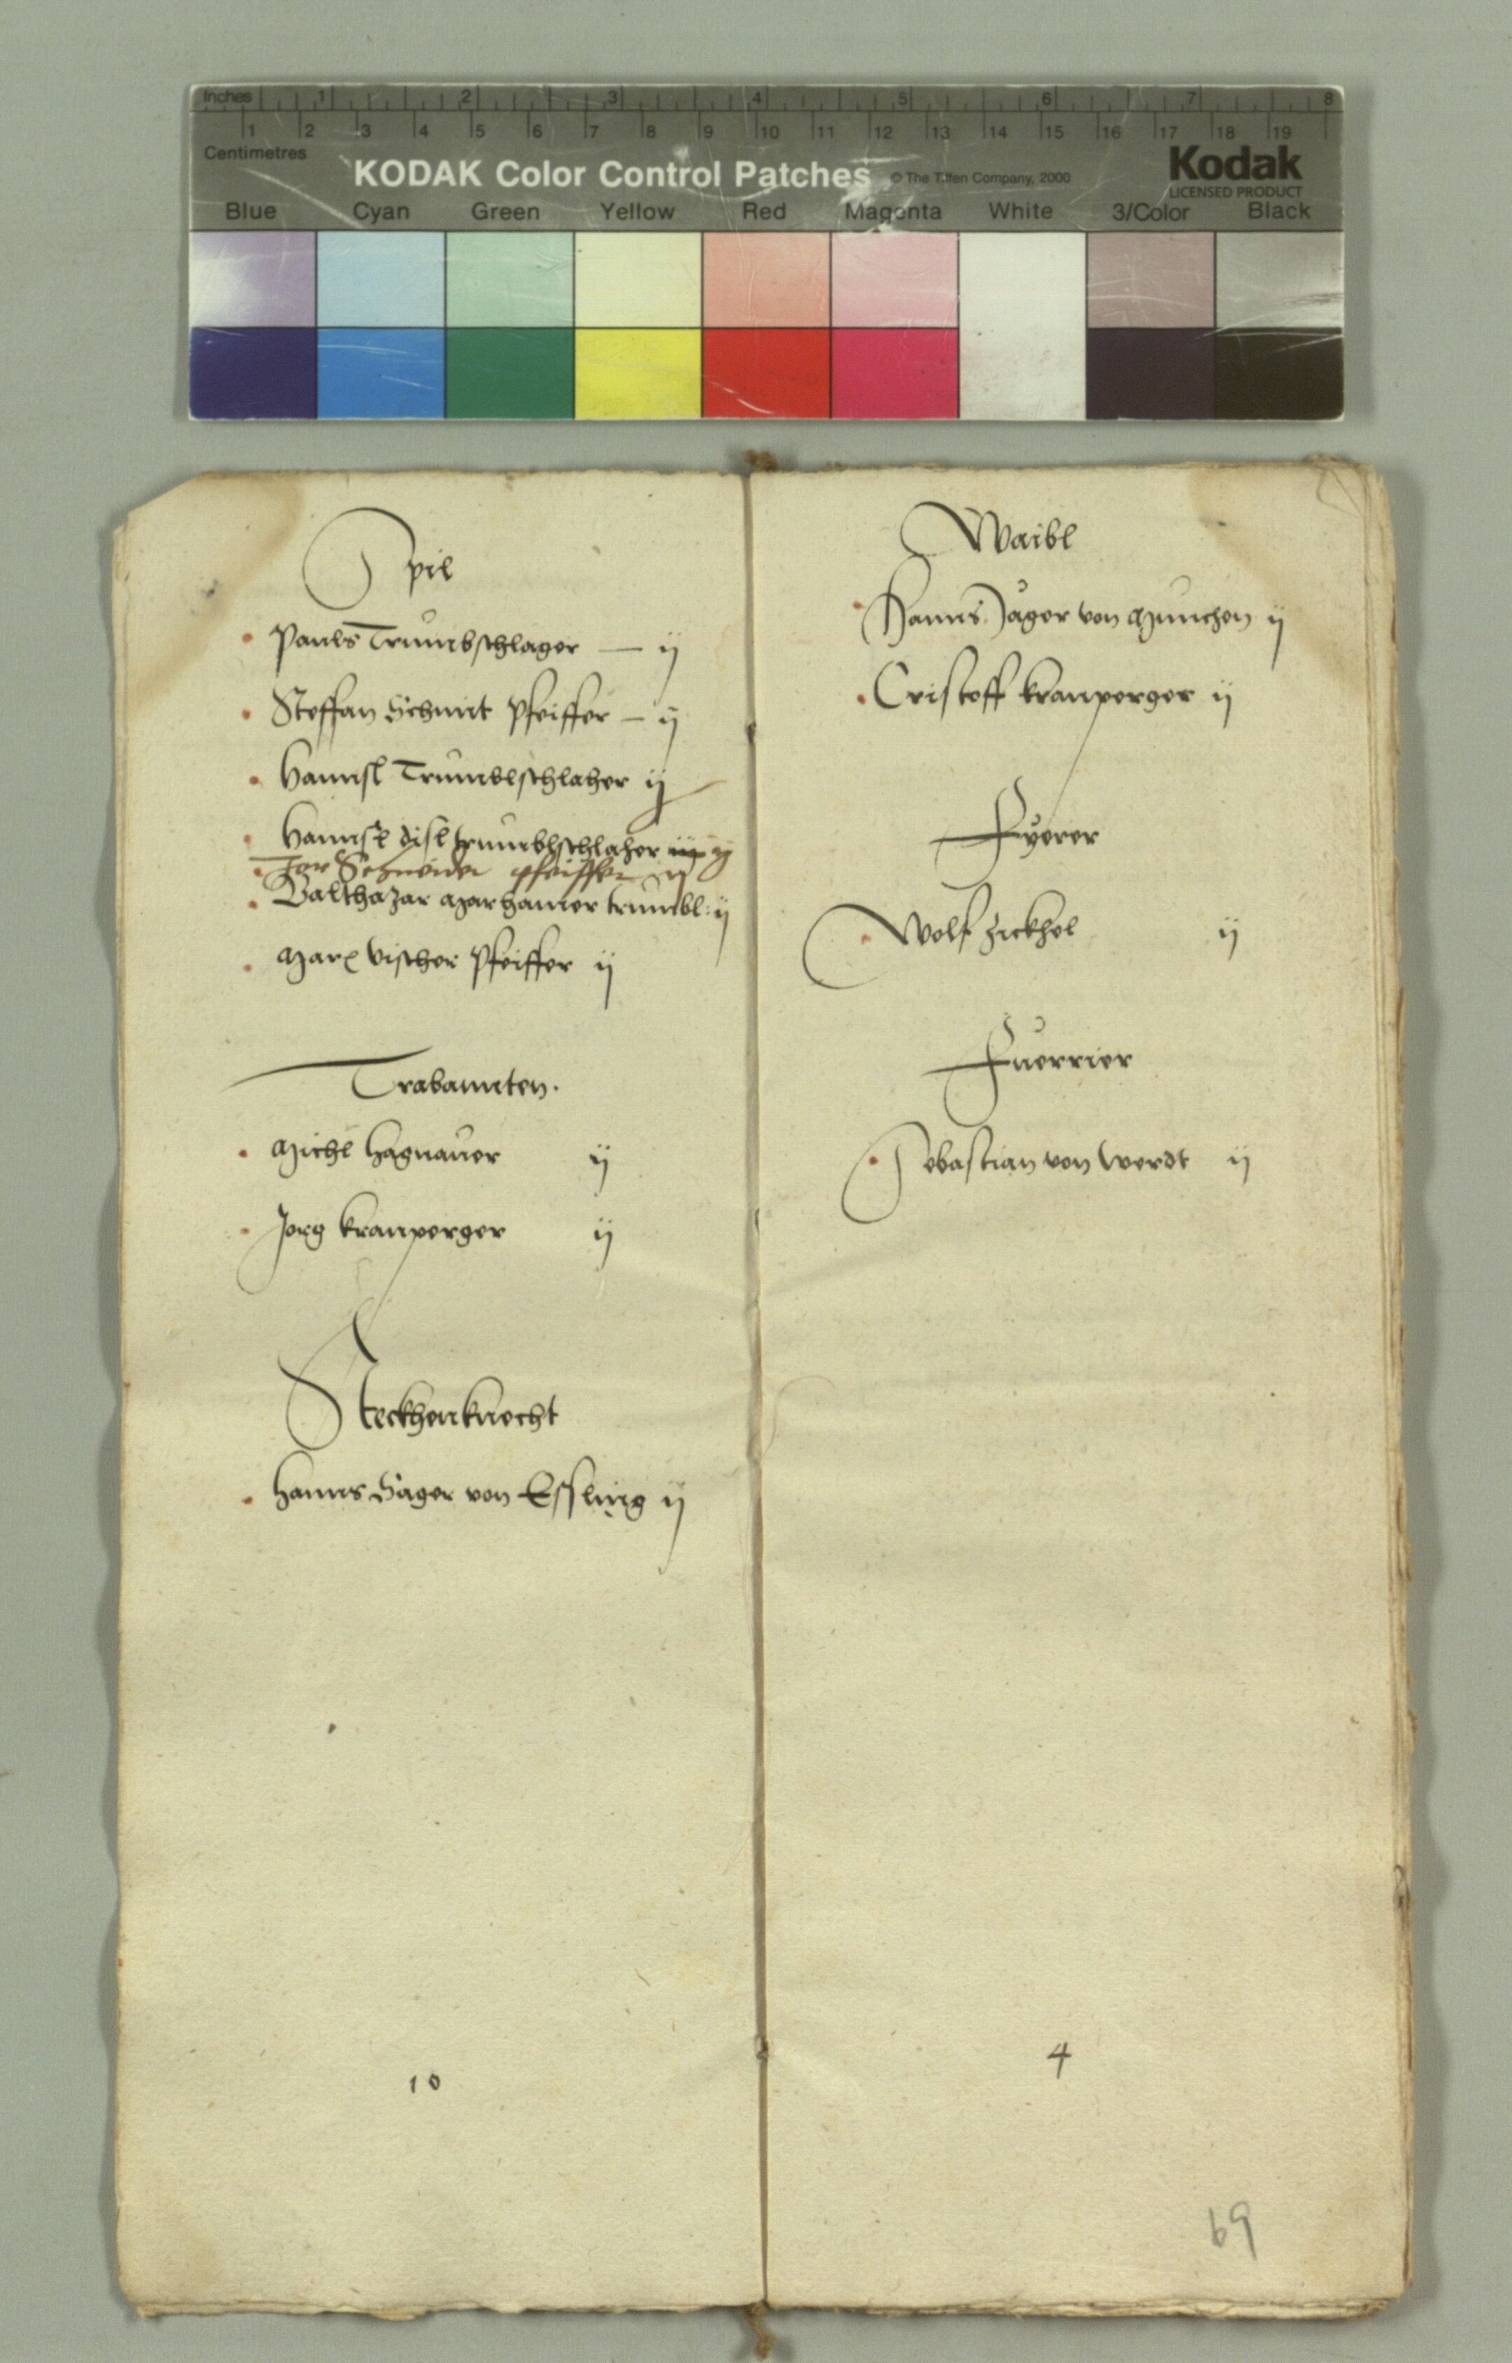 Inches 1 2 3 4 5 6 7 8
1 2 3 4 5 6 7 8 9 10 11 12 13 14 15 16 17 18 19
Centimetres
KODAK Color Control Patches © The Tiffen Company, 2000 Kodak
LICENSED PRODUCT
Blue Cyan Green Yellow Red Magenta White 3/Color Black
Spil
Pauls Trumbschlager — ij
Steffan Schmit Pfeiffer — ij
Hannsl Trumblschlaher ij
Hannsl disl trumblschlaher iij ij
Jor Schneider pfeiffer ij
Balthazar Marhamer trumbl: ij
Marx Vischer Pfeiffer ij
Trabannten.
Michl Hagnauer ij
Jorg Kranperger ij
Steckhenknecht
Hanns Sager von Essling ij
10
Waibl
Hanns Jäger von Munchen ij
Cristoff Kranperger ij
Fyerer
Wolf Zickhel ij
Fuerrier
Sebastian von Werdt ij
4
69